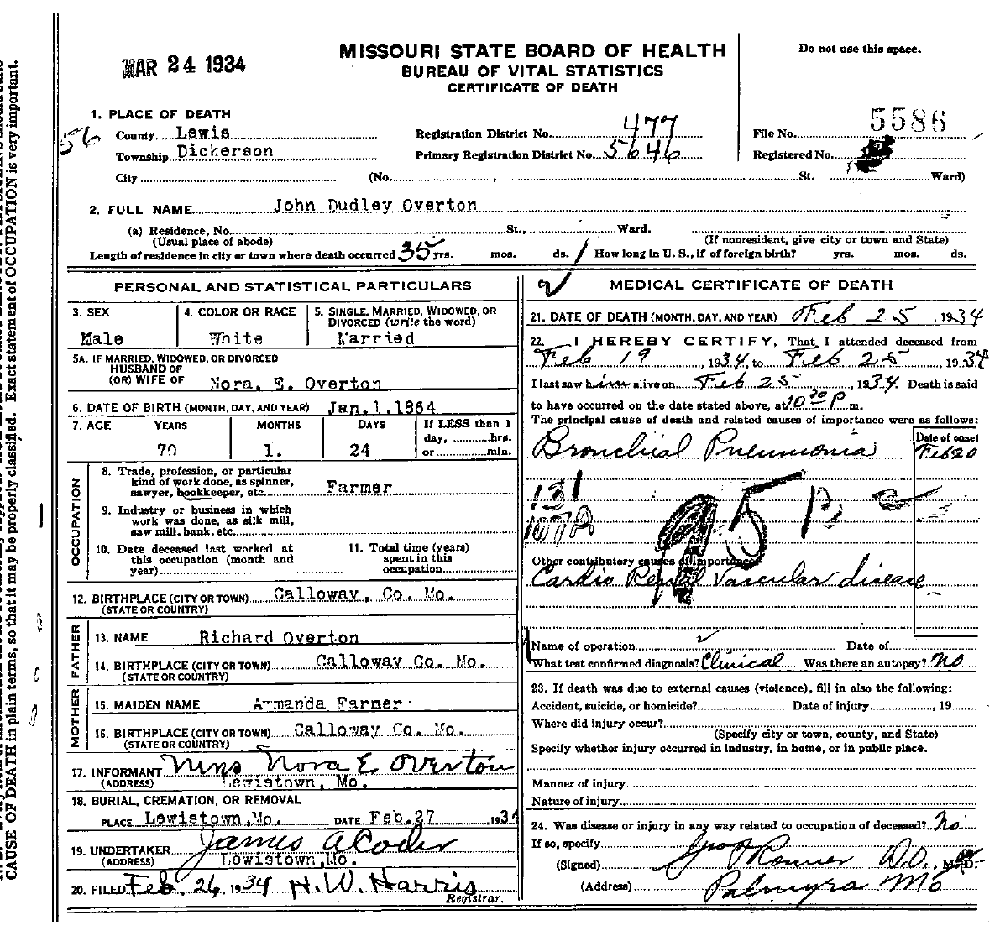 MAR 24 1934
MISSOURI STATE BOARD OF HEALTH
BUREAU OF VITAL STATISTICS
CERTIFICATE OF DEATH
Do not use this space.
CAUSE OF DEATH in plain terms, so that it may be properly classified. Exact statement of OCCUPATION is very important.
1. PLACE OF DEATH
56 County Lewis Registration District No. 477 File No. 5586
Township Dickerson Primary Registration District No. 5646 Registered No.
City (No. St. Ward)
2. FULL NAME John Dudley Overton
(a) Residence, No. St., Ward.
(Usual place of abode) (If nonresident, give city or town and State)
Length of residence in city or town where death occurred 35 yrs. mos. ds. How long in U. S., if of foreign birth? yrs. mos. ds.
PERSONAL AND STATISTICAL PARTICULARS
3. SEX 4. COLOR OR RACE 5. SINGLE, MARRIED, WIDOWED, OR
DIVORCED (write the word)
Male White Married
5A. IF MARRIED, WIDOWED, OR DIVORCED
HUSBAND OF
(OR) WIFE OF Nora. E. Overton
6. DATE OF BIRTH (MONTH, DAY, AND YEAR) Jan. 1. 1864
7. AGE YEARS MONTHS DAYS If LESS than 1
day, hrs.
70 1. 24 or min.
OCCUPATION
8. Trade, profession, or particular
kind of work done, as spinner,
sawyer, bookkeeper, etc. Farmer
9. Industry or business in which
work was done, as silk mill,
saw mill, bank, etc.
10. Date deceased last worked at
this occupation (month and
year)
11. Total time (years)
spent in this
occupation
12. BIRTHPLACE (CITY OR TOWN) Calloway. Co. Mo.
(STATE OR COUNTRY)
FATHER
13. NAME Richard Overton
14. BIRTHPLACE (CITY OR TOWN) Calloway Co. Mo.
(STATE OR COUNTRY)
MOTHER
15. MAIDEN NAME Armanda Farmer
16. BIRTHPLACE (CITY OR TOWN) Calloway Co. Mo.
(STATE OR COUNTRY)
17. INFORMANT Mrs Nora E Overton
(ADDRESS) Lewistown, Mo.
18. BURIAL, CREMATION, OR REMOVAL
PLACE Lewistown, Mo. DATE Feb. 27 1934
19. UNDERTAKER James A Coder
(ADDRESS) Lewistown, Mo.
20. FILED Feb. 26, 1934 H. W. Harris
Registrar.
MEDICAL CERTIFICATE OF DEATH
21. DATE OF DEATH (MONTH, DAY, AND YEAR) Feb 25 1934
22. I HEREBY CERTIFY, That I attended deceased from
Feb 19, 1934, to Feb 25, 1934
I last saw him alive on Feb 25, 1934 Death is said
to have occurred on the date stated above, at 10 30 P m.
The principal cause of death and related causes of importance were as follows:
Date of onset
Bronchial Pneumonia Feb 20
131
107A
95
Other contributory causes of importance:
Cardio Renal Vascular disease
Name of operation Date of
What test confirmed diagnosis? Clinical Was there an autopsy? No
23. If death was due to external causes (violence), fill in also the following:
Accident, suicide, or homicide? Date of injury , 19
Where did injury occur?
(Specify city or town, county, and State)
Specify whether injury occurred in industry, in home, or in public place.
Manner of injury
Nature of injury
24. Was disease or injury in any way related to occupation of deceased? No
If so, specify
(Signed) D.O., M.D.
(Address) Palmyra Mo